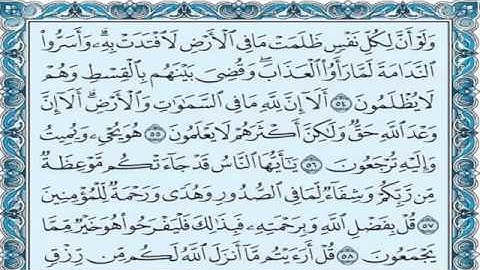 وَلَوْ أَنَّ لِكُلِّ نَفْسٍ ظَلَمَتْ مَا فِى ٱلْأَرْضِ لَٱفْتَدَتْ بِهِۦۗ وَأَسَرُّوا۟
ٱلنَّدَامَةَ لَمَّا رَأَوُا۟ ٱلْعَذَابَۖ وَقُضِىَ بَيْنَهُم بِٱلْقِسْطِ وَهُمْ
لَا يُظْلَمُونَ ٥٤ أَلَآ إِنَّ لِلَّهِ مَا فِى ٱلسَّمَٰوَٰتِ وَٱلْأَرْضِۗ أَلَآ إِنَّ
وَعْدَ ٱللَّهِ حَقٌّ وَلَٰكِنَّ أَكْثَرَهُمْ لَا يَعْلَمُونَ ٥٥ هُوَ يُحْىِۦ وَيُمِيتُ
وَإِلَيْهِ تُرْجَعُونَ ٥٦ يَٰٓأَيُّهَا ٱلنَّاسُ قَدْ جَآءَتْكُم مَّوْعِظَةٌ
مِّن رَّبِّكُمْ وَشِفَآءٌ لِّمَا فِى ٱلصُّدُورِ وَهُدًى وَرَحْمَةٌ لِّلْمُؤْمِنِينَ
٥٧ قُلْ بِفَضْلِ ٱللَّهِ وَبِرَحْمَتِهِۦ فَبِذَٰلِكَ فَلْيَفْرَحُوا۟ هُوَ خَيْرٌ مِّمَّا
يَجْمَعُونَ ٥٨ قُلْ أَرَءَيْتُم مَّآ أَنزَلَ ٱللَّهُ لَكُم مِّن رِّزْقٍ